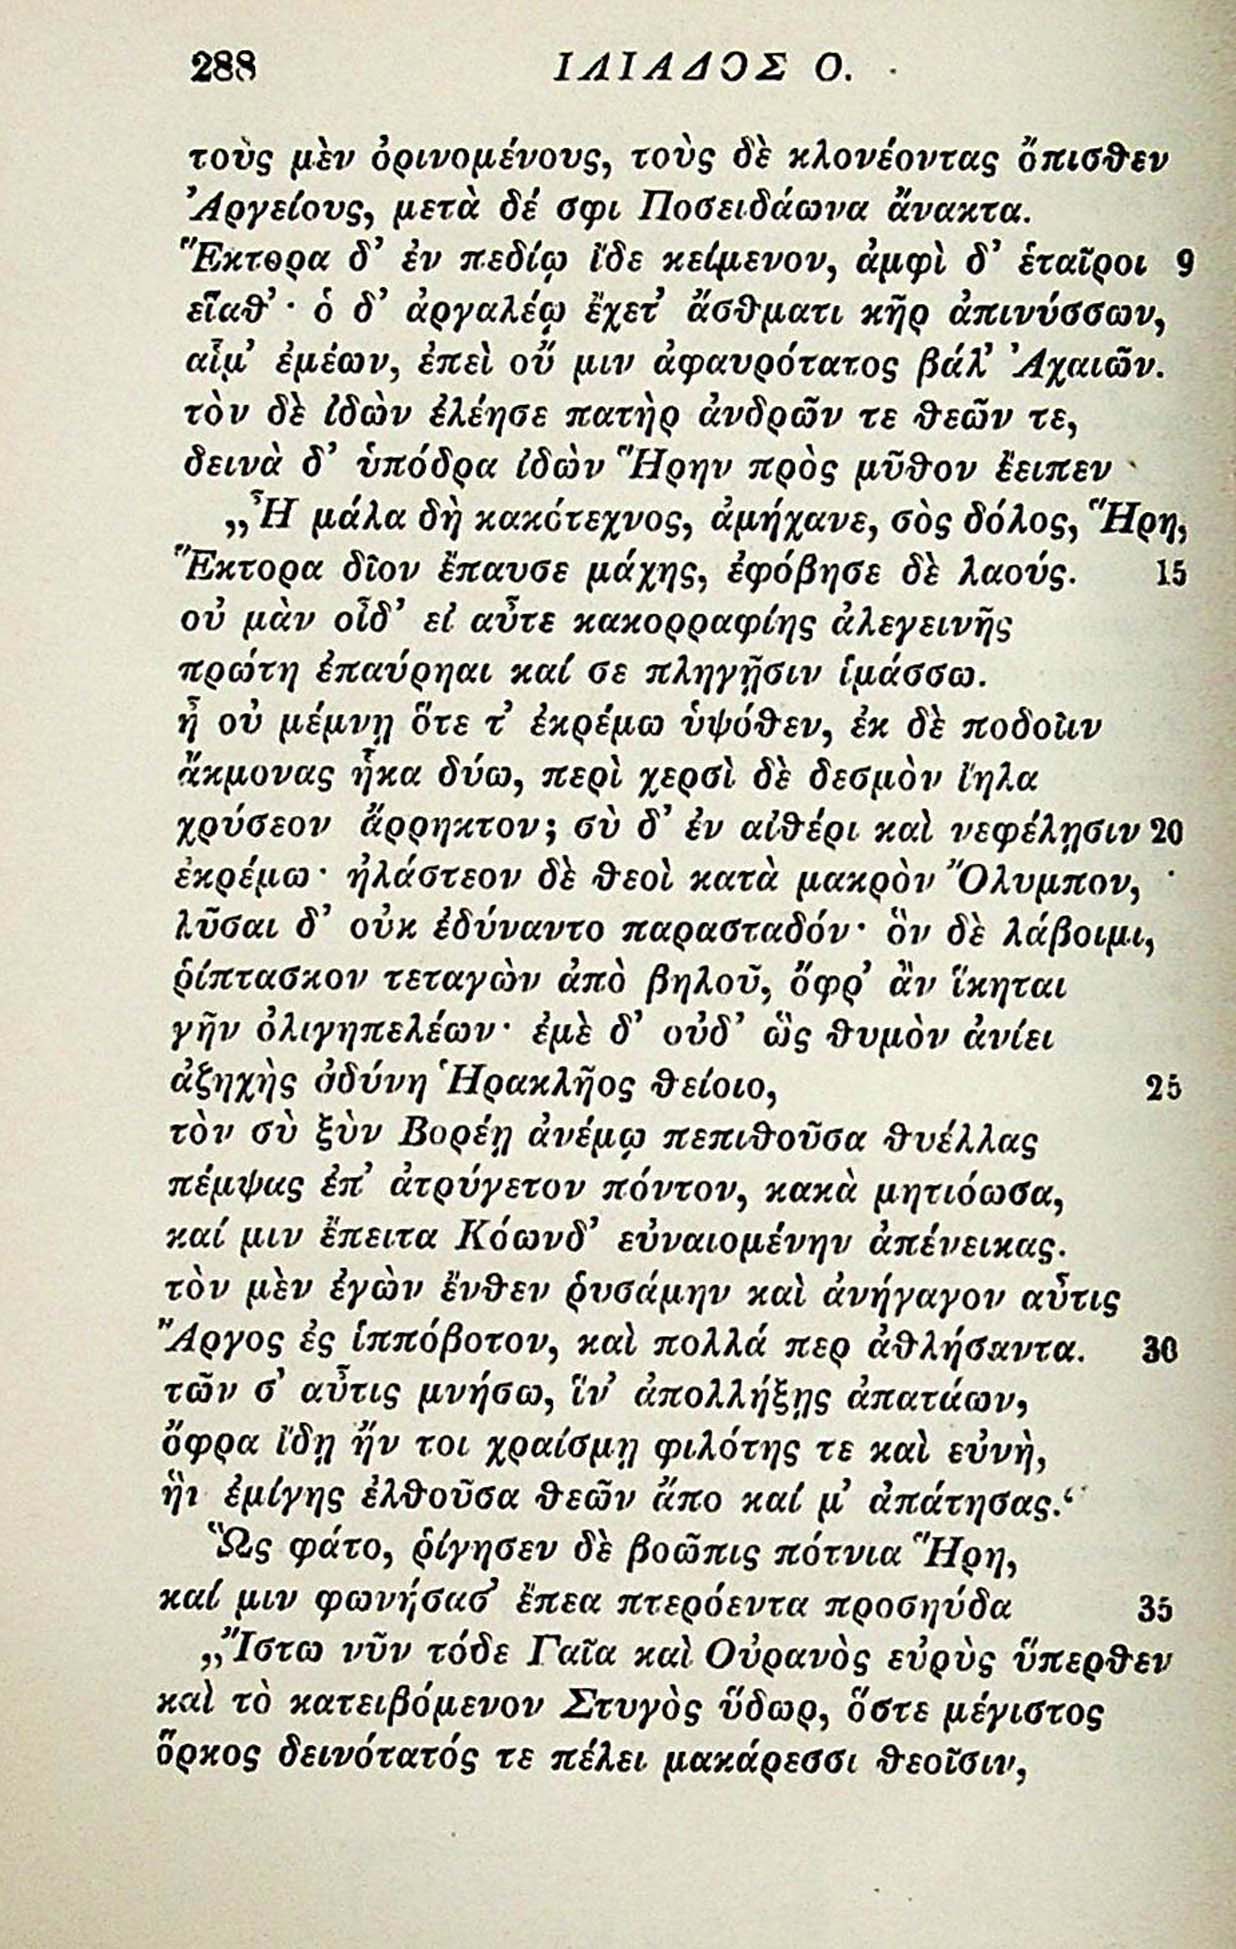 288 ΙΛΙΑΔΟΣ Ο.
τοὺς μὲν ὀρινομένους, τοὺς δὲ κλονέοντας ὄπισθεν
Ἀργείους, μετὰ δέ σφι Ποσειδάωνα ἄνακτα.
Ἕκτορα δ’ ἐν πεδίῳ ἴδε κείμενον, ἀμφὶ δ’ ἑταῖροι 9
εἵαθ’· ὁ δ’ ἀργαλέῳ ἔχετ’ ἄσθματι κῆρ ἀπινύσσων,
αἷμ’ ἐμέων, ἐπεὶ οὔ μιν ἀφαυρότατος βάλ’ Ἀχαιῶν.
τὸν δὲ ἰδὼν ἐλέησε πατὴρ ἀνδρῶν τε θεῶν τε,
δεινὰ δ’ ὑπόδρα ἰδὼν Ἥρην πρὸς μῦθον ἔειπεν·
„Ἦ μάλα δὴ κακότεχνος, ἀμήχανε, σὸς δόλος, Ἥρη,
Ἕκτορα δῖον ἔπαυσε μάχης, ἐφόβησε δὲ λαούς. 15
οὐ μὰν οἶδ’ εἰ αὖτε κακορραφίης ἀλεγεινῆς
πρώτη ἐπαύρηαι καί σε πληγῇσιν ἱμάσσω.
ἦ οὐ μέμνῃ ὅτε τ’ ἐκρέμω ὑψόθεν, ἐκ δὲ ποδοῖιν
ἄκμονας ἧκα δύω, περὶ χερσὶ δὲ δεσμὸν ἴηλα
χρύσεον ἄρρηκτον; σὺ δ’ ἐν αἰθέρι καὶ νεφέλῃσιν 20
ἐκρέμω· ἠλάστεον δὲ θεοὶ κατὰ μακρὸν Ὄλυμπον,
λῦσαι δ’ οὐκ ἐδύναντο παρασταδόν· ὃν δὲ λάβοιμι,
ῥίπτασκον τεταγὼν ἀπὸ βηλοῦ, ὄφρ’ ἂν ἵκηται
γῆν ὀλιγηπελέων· ἐμὲ δ’ οὐδ’ ὣς θυμὸν ἀνίει
ἀζηχὴς ὀδύνη Ἡρακλῆος θείοιο, 25
τὸν σὺ ξὺν Βορέῃ ἀνέμῳ πεπιθοῦσα θυέλλας
πέμψας ἐπ’ ἀτρύγετον πόντον, κακὰ μητιόωσα,
καί μιν ἔπειτα Κόωνδ’ εὐναιομένην ἀπένεικας.
τὸν μὲν ἐγὼν ἔνθεν ῥυσάμην καὶ ἀνήγαγον αὖτις
Ἄργος ἐς ἱππόβοτον, καὶ πολλά περ ἀθλήσαντα. 30
τῶν σ’ αὖτις μνήσω, ἵν’ ἀπολλήξῃς ἀπατάων,
ὄφρα ἴδῃ ἤν τοι χραίσμῃ φιλότης τε καὶ εὐνὴ,
ἣι ἐμίγης ἐλθοῦσα θεῶν ἄπο καί μ’ ἀπάτησας.“
Ὣς φάτο, ῥίγησεν δὲ βοῶπις πότνια Ἥρη,
καί μιν φωνήσασ’ ἔπεα πτερόεντα προσηύδα 35
„Ἴστω νῦν τόδε Γαῖα καὶ Οὐρανὸς εὐρὺς ὕπερθεν
καὶ τὸ κατειβόμενον Στυγὸς ὕδωρ, ὅστε μέγιστος
ὅρκος δεινότατός τε πέλει μακάρεσσι θεοῖσιν,